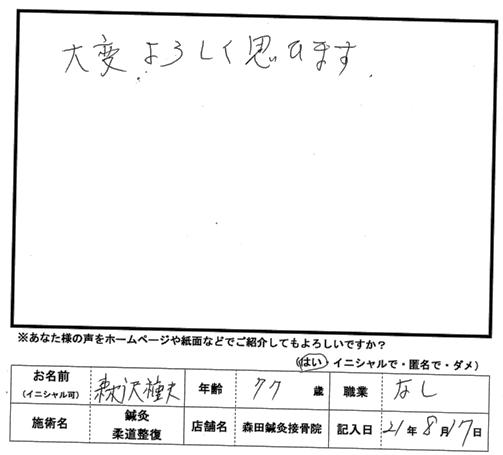 大変よろしく思います.
※あなた様の声をホームページや紙面などでご紹介してもよろしいですか？
（はい・イニシャルで・匿名で・ダメ）
お名前
（イニシャル可）
年齢 77 歳 職業 なし
施術名 鍼灸
柔道整復
店舗名 森田鍼灸接骨院 記入日 21年8月17日